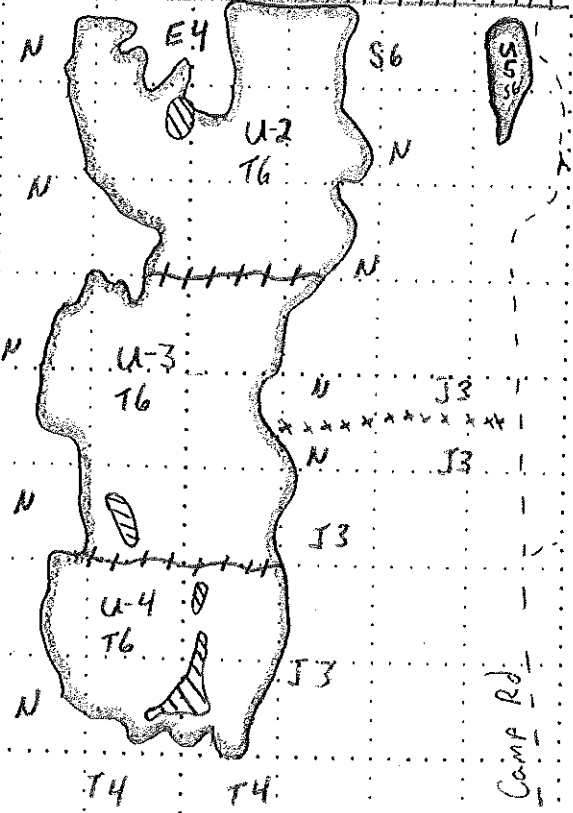 E4
N
S6
U
5
S6
U-2
T6
N
N
N
U-3
T6
N
N
J3
N
J3
N
J3
U-4
T6
J3
N
T4
T4
Camp Rd